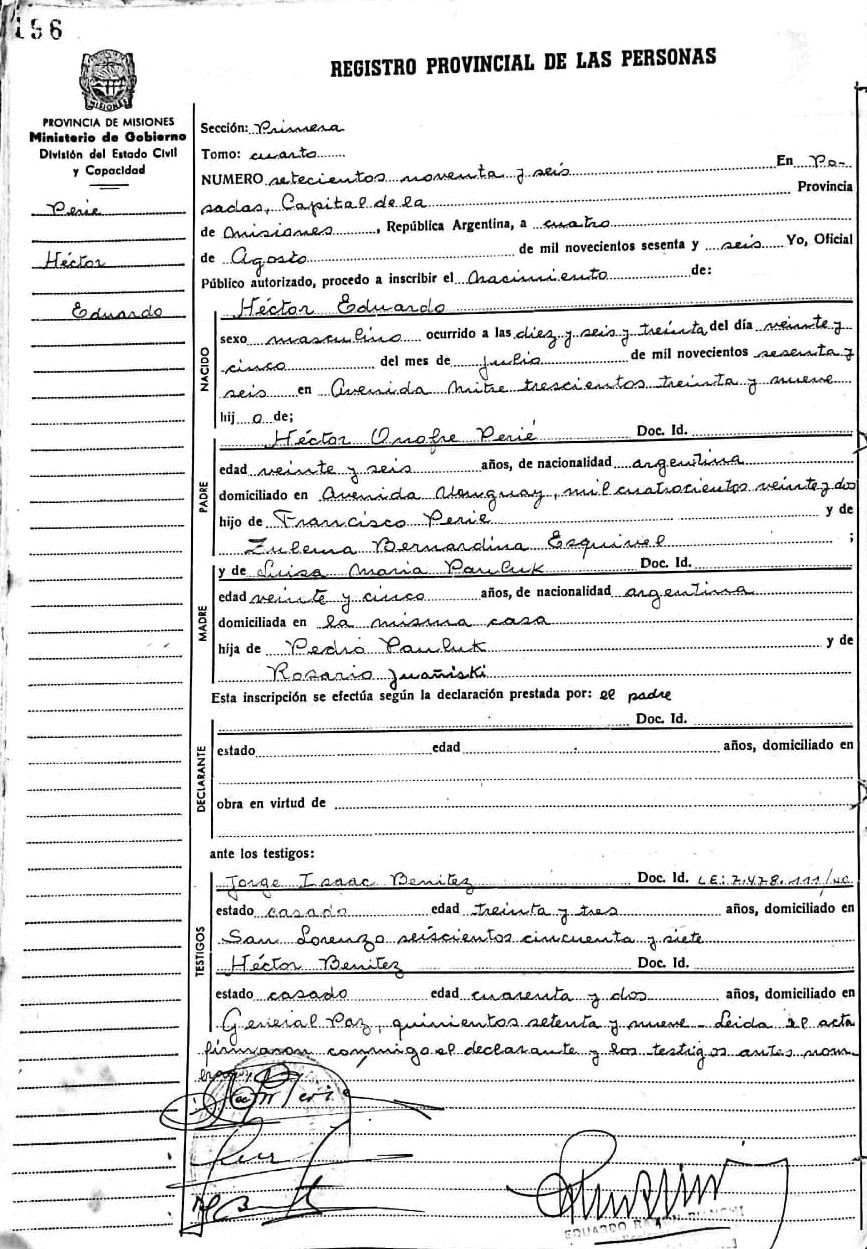 196
REGISTRO PROVINCIAL DE LAS PERSONAS
MISIONES
PROVINCIA DE MISIONES
Ministerio de Gobierno
División del Estado Civil
y Capacidad
Perie
Héctor
Eduardo
Sección: Primera
Tomo: cuarto
NUMERO setecientos noventa y seis En Po-
sadas, Capital de la Provincia
de Misiones, República Argentina, a cuatro
de Agosto de mil novecientos sesenta y seis Yo, Oficial
Público autorizado, procedo a inscribir el nacimiento de:
NACIDO
Héctor Eduardo
sexo masculino ocurrido a las diez y seis y treinta del día veinte y
cinco del mes de julio de mil novecientos sesenta y
seis en Avenida Mitre trescientos treinta y nueve
hij o de;
PADRE
Héctor Onofre Perié Doc. Id.
edad veinte y seis años, de nacionalidad argentina
domiciliado en Avenida Uruguay, mil cuatrocientos veinte y dos
hijo de Francisco Perie y de
Zulema Bernardina Esquivel ;
MADRE
y de Luisa Maria Pauluk Doc. Id.
edad veinte y cinco años, de nacionalidad argentina
domiciliada en la misma casa
hija de Pedro Pauluk y de
Rosario
Esta inscripción se efectúa según la declaración prestada por: el padre
DECLARANTE
Doc. Id.
estado edad años, domiciliado en
obra en virtud de
ante los testigos:
TESTIGOS
Jorge Isaac Benitez Doc. Id. LE: 7.478.111
estado casado edad treinta y tres años, domiciliado en
San Lorenzo seiscientos cincuenta y siete
Héctor Benitez Doc. Id.
estado casado edad cuarenta y dos años, domiciliado en
General Paz, quinientos setenta y nueve - Leida el acta
firmaron conmigo el declarante y los testigos antes nom
EDUARDO